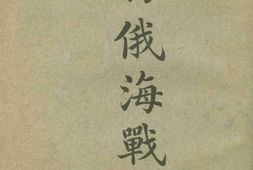 俄海戰